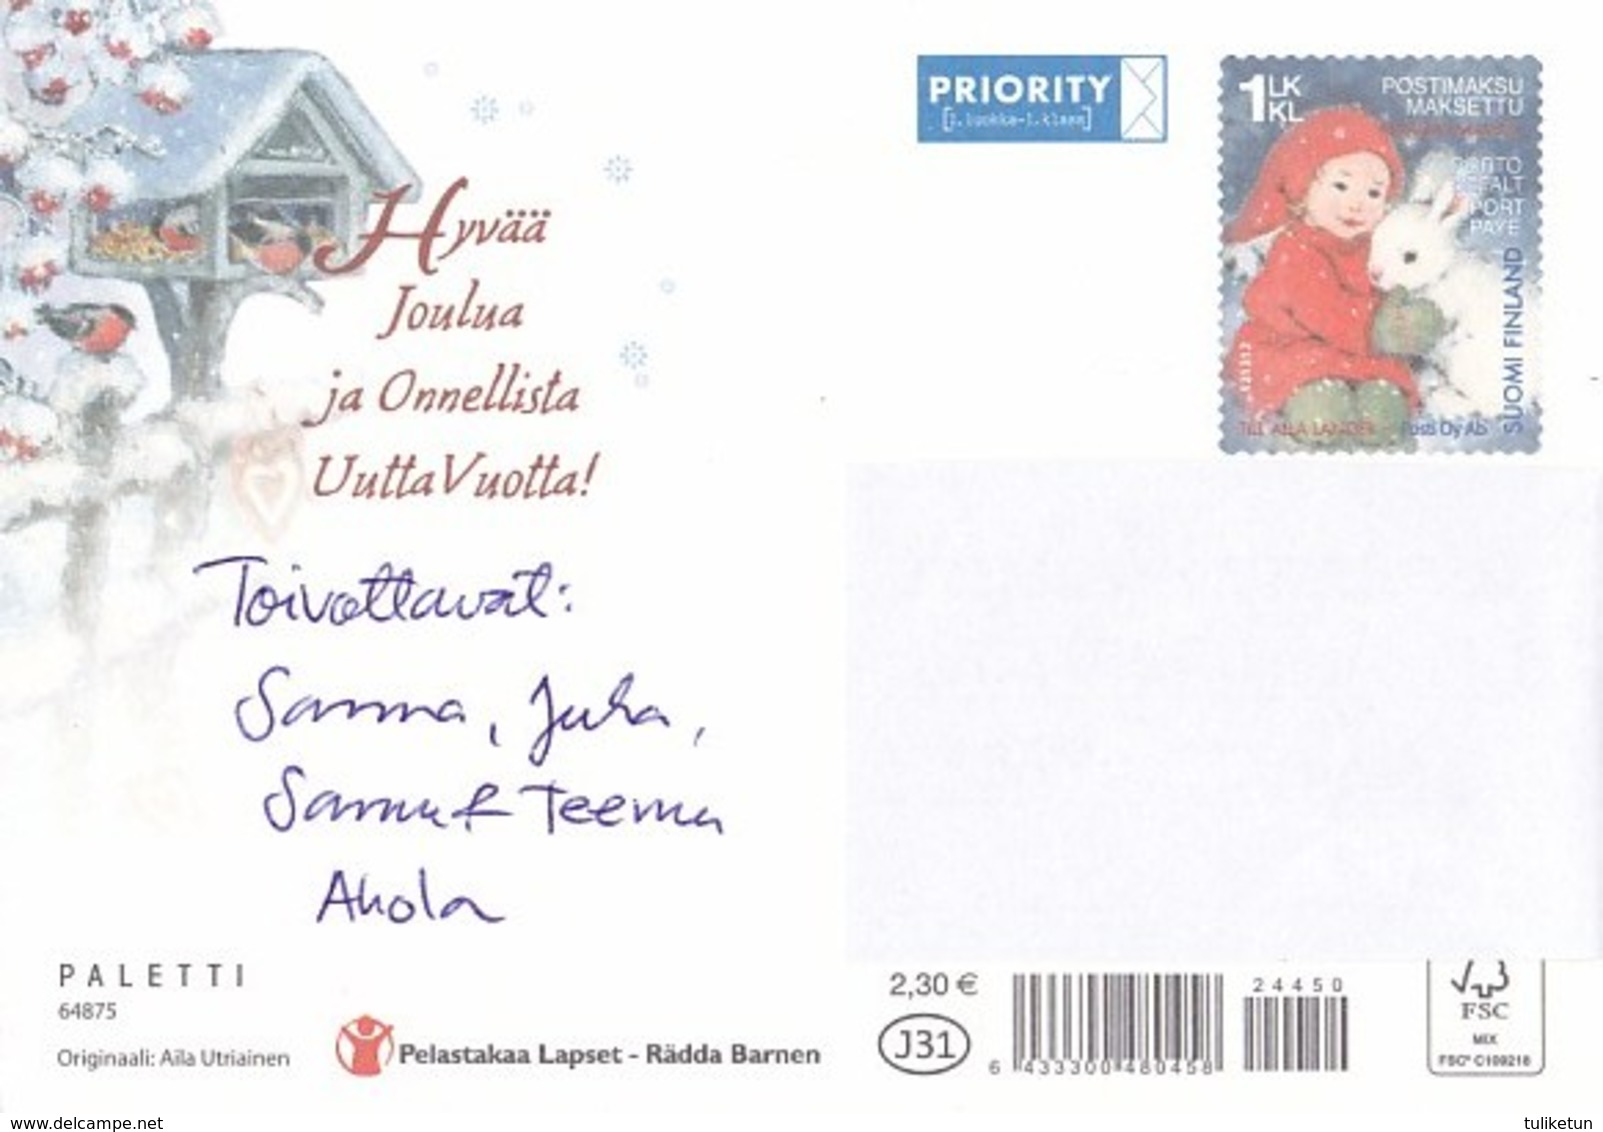 Hyvää
Joulua
ja Onnellista
Uutta Vuotta!
Toivottavat:
Sanna, Juha,
Samu & Teemu
Ahola
PALETTI
64875
Originaali: Aila Utriainen
Pelastakaa Lapset - Rädda Barnen
PRIORITY
[1.luokka-1.klass]
1 LK
KL
POSTIMAKSU
MAKSETTU
PORTO
BETALT
PORT
PAYÉ
SUOMI FINLAND
TILL ALLA LÄNDER
Posti Oy Ab
2,30 €
J31
6 433300 480458
24450
FSC
MIX
FSC® C109218
www.delcampe.net
tuliketun